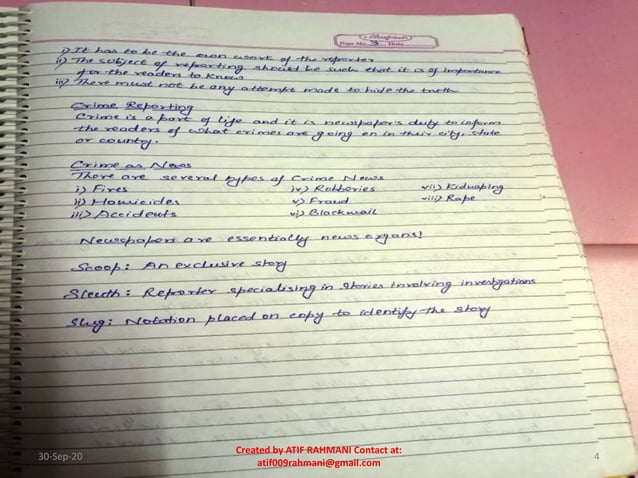 Classmate
Page No. 3 Date
i) It has to be the own work of the reporter
ii) The subject of reporting should be such that it is of importance
for the readers to know
iii) There must not be any attempt made to hide the truth
Crime Reporting
Crime is a part of life and it is newspaper's duty to inform
the readers of what crimes are going on in their city, state
or country.
Crime as News
There are several types of Crime News
i) Fires iv) Robberies vii) Kidnaping
ii) Homicides v) Fraud viii) Rape
iii) Accidents vi) Blackmail
Newspapers are essentially news organs!
Scoop: An exclusive story
Sleuth: Reporter specialising in stories involving investigations
Slug: Notation placed on copy to identify the story
30-Sep-20
Created by ATIF RAHMANI Contact at:
atif009rahmani@gmail.com
4